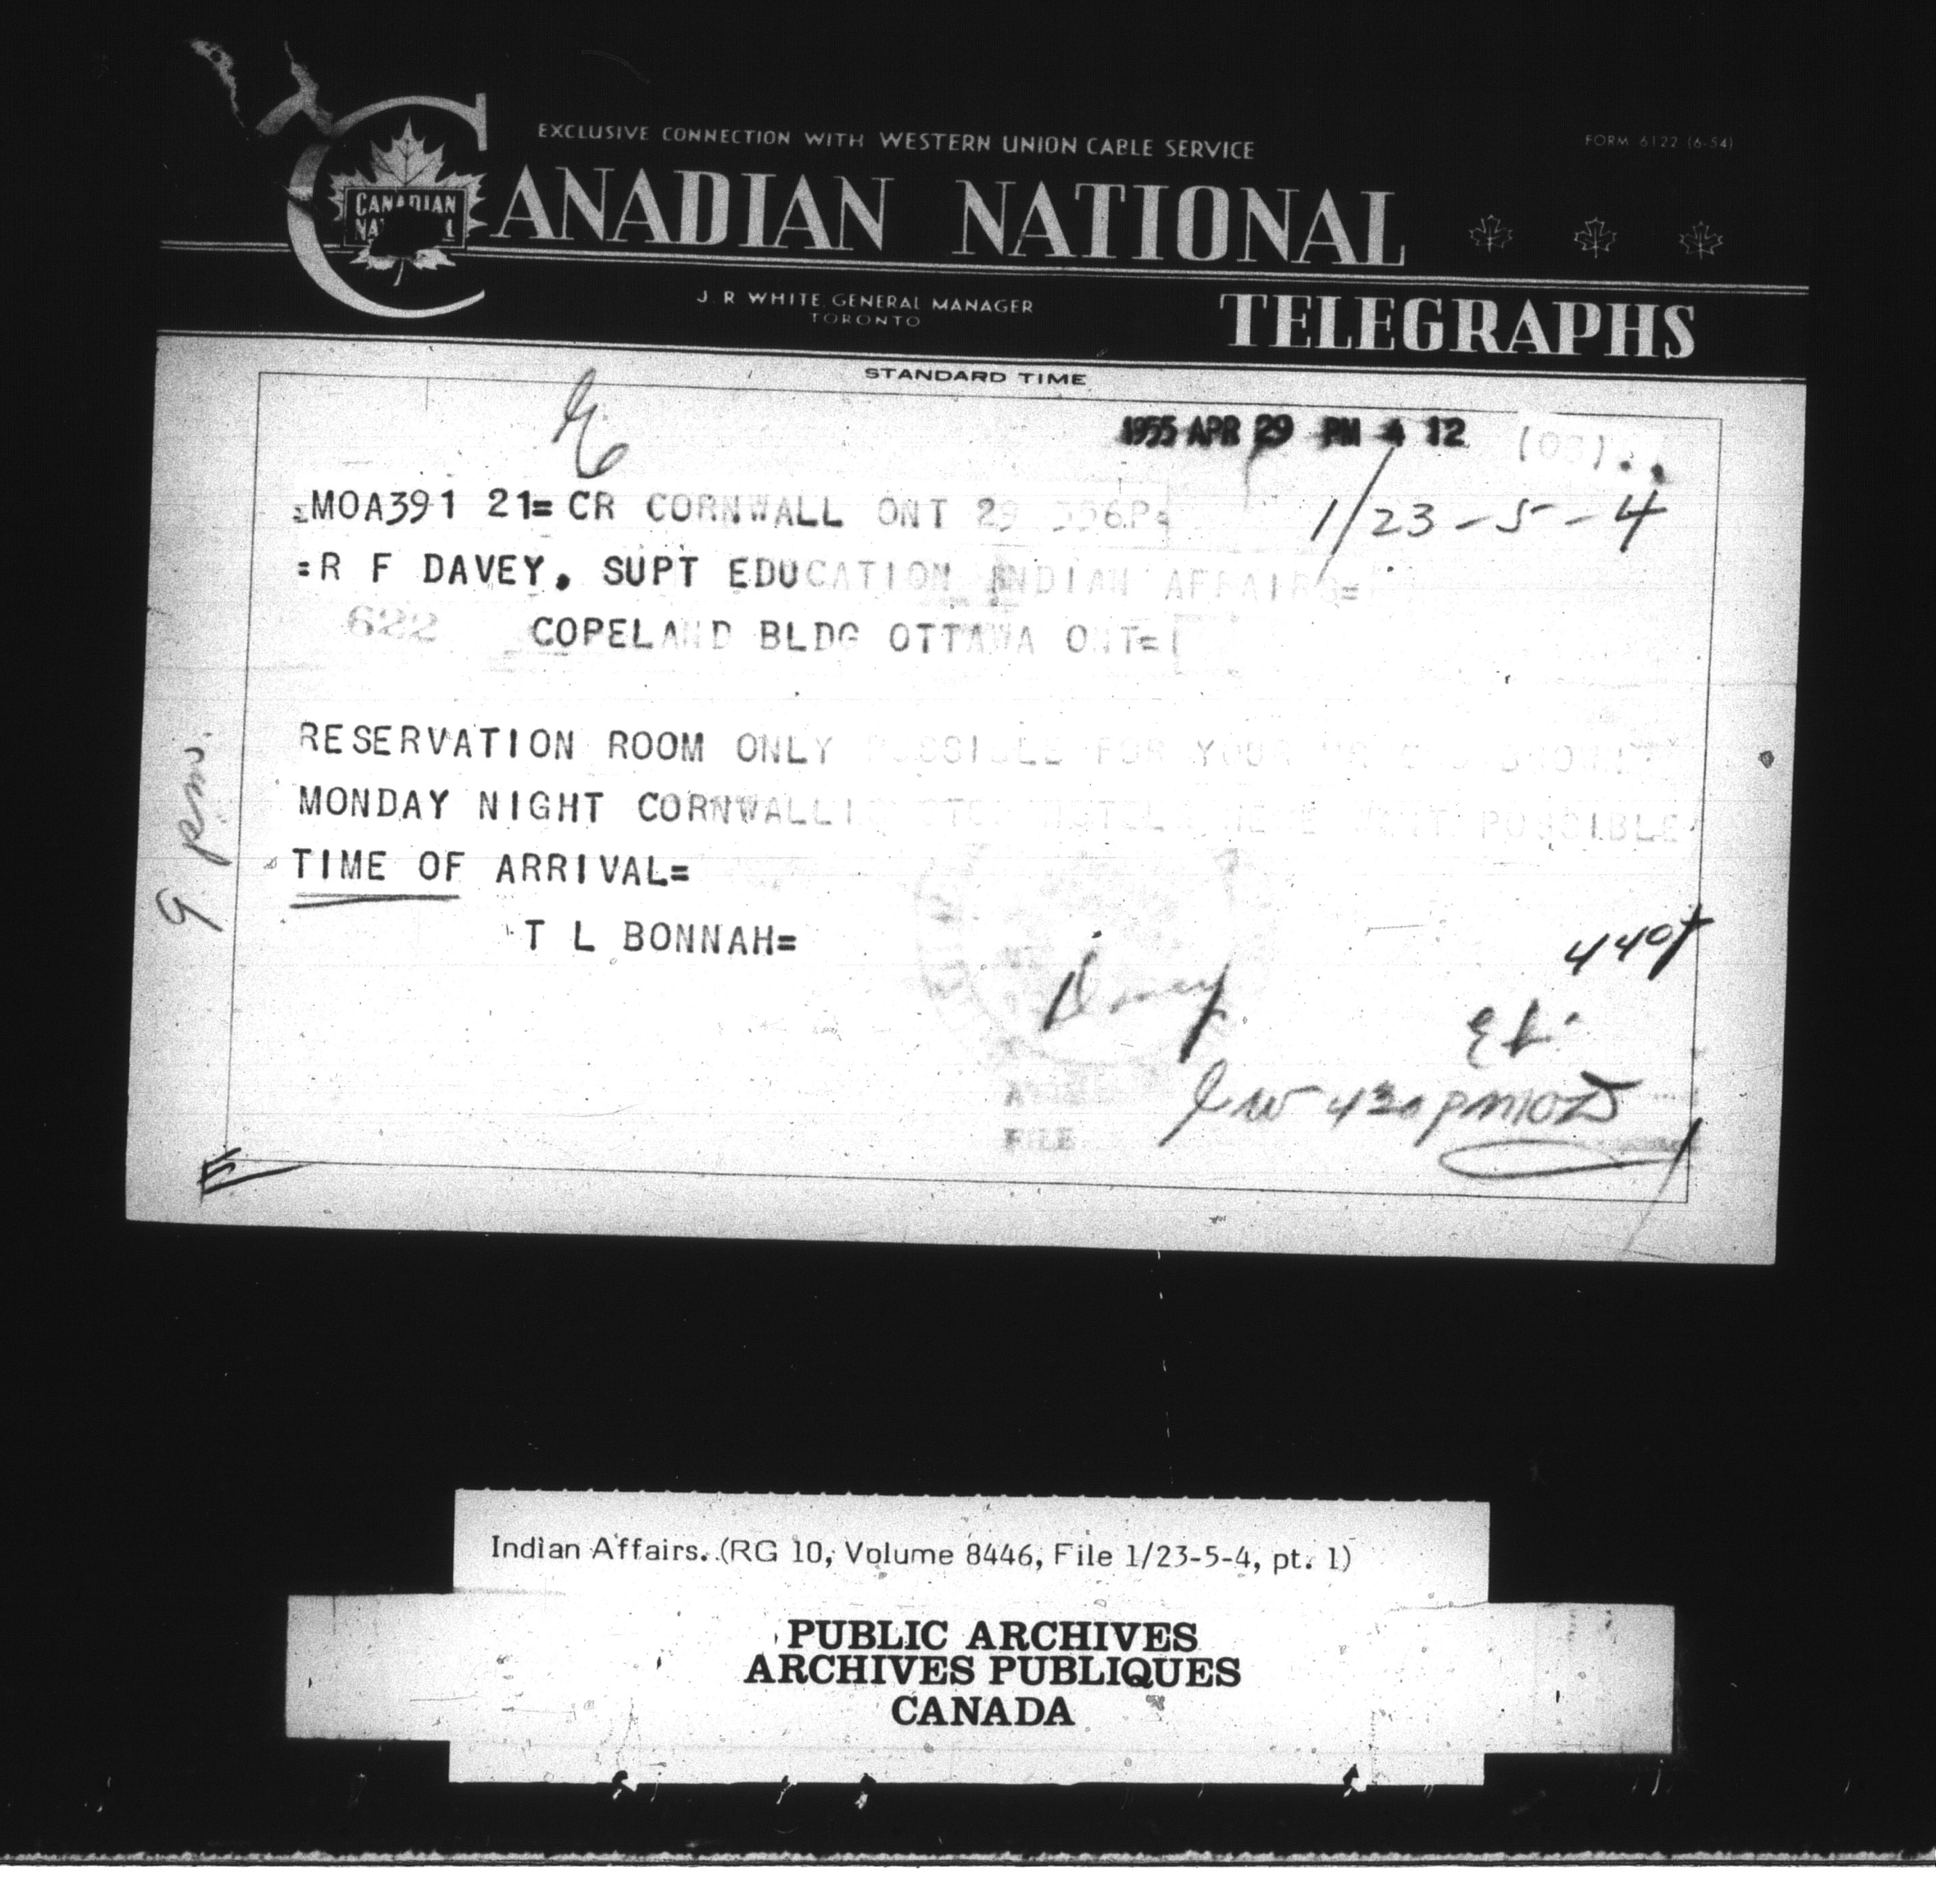 EXCLUSIVE CONNECTION WITH WESTERN UNION CABLE SERVICE
FORM 6122 (6-54)
CANADIAN NATIONAL
CANADIAN
TELEGRAPHS
J. R. WHITE, GENERAL MANAGER
TORONTO
STANDARD TIME
1955 APR 29 PM 4 12
MOA391 21= CR CORNWALL ONT 29
1/23-5-4
=R F DAVEY. SUPT EDUCATION INDIAN AFFAIRS=
622
COPELAND BLDG OTTAWA ONT=
RESERVATION ROOM ONLY POSSIBLE FOR YOUR
MONDAY NIGHT POSSIBLE
TIME OF ARRIVAL=
T L BONNAH=
9 pm.
Davey
FILE
Indian Affairs. (RG 10, Volume 8446, File 1/23-5-4, pt. 1)
PUBLIC ARCHIVES
ARCHIVES PUBLIQUES
CANADA